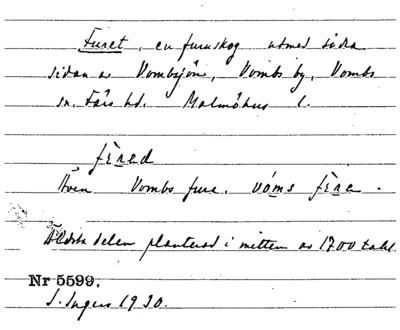 Furet, en furuskog utmed södra
sidan av Vombsjön, Vombs by, Vombs
sn. Färs hd. Malmöhus l.
fèred
Även Vombs fure. vóms fère.
Äldsta delen planterad i mitten av 1700 talet.
Nr 5599.
S. Ingers 1930.